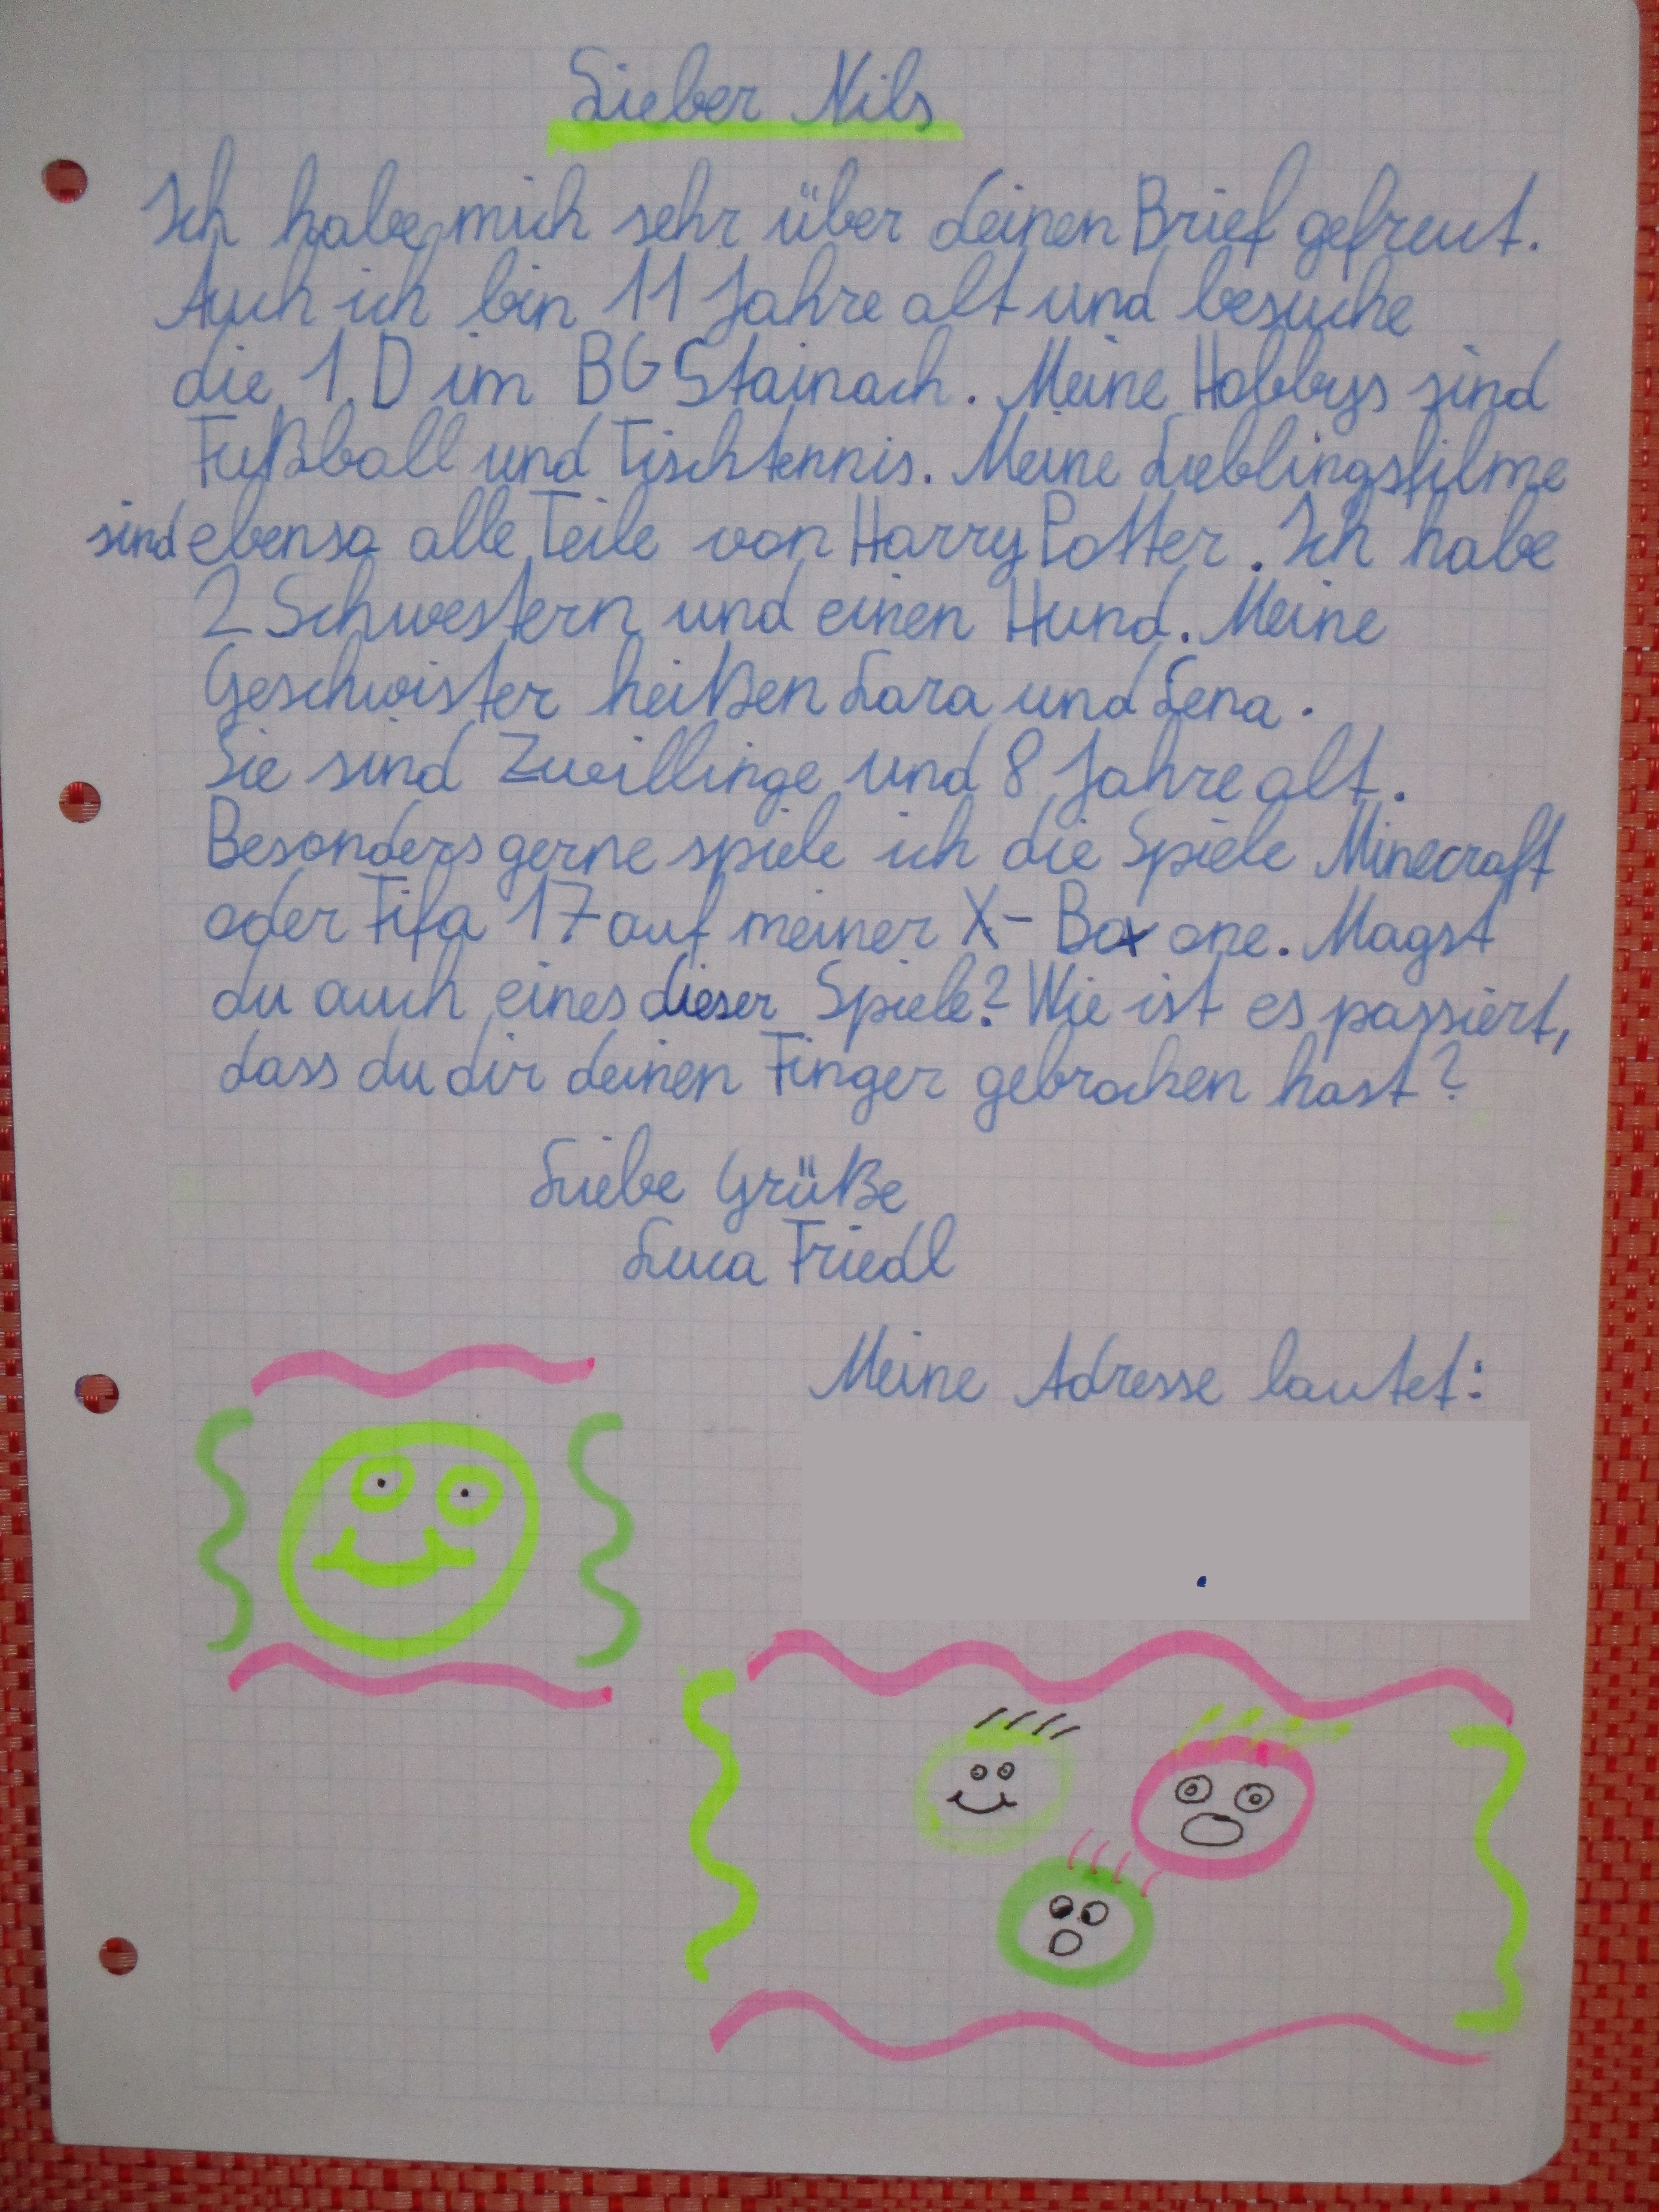 Lieber Nils
Ich habe mich sehr über deinen Brief gefreut.
Auch ich bin 11 Jahre alt und besuche
die 1.D im BG Stainach. Meine Hobbys sind
Fußball und Tischtennis. Meine Lieblingsfilme
sind ebenso alle Teile von Harry Potter. Ich habe
2 Schwestern und einen Hund. Meine
Geschwister heißen Lara und Lena.
Sie sind Zwillinge und 8 Jahre alt.
Besonders gerne spiele ich die Spiele Minecraft
oder Fifa 17 auf meiner X-Box one. Magst
du auch eines dieser Spiele? Wie ist es passiert,
dass du dir deinen Finger gebrochen hast?
Liebe Grüße
Luca Friedl
Meine Adresse lautet: